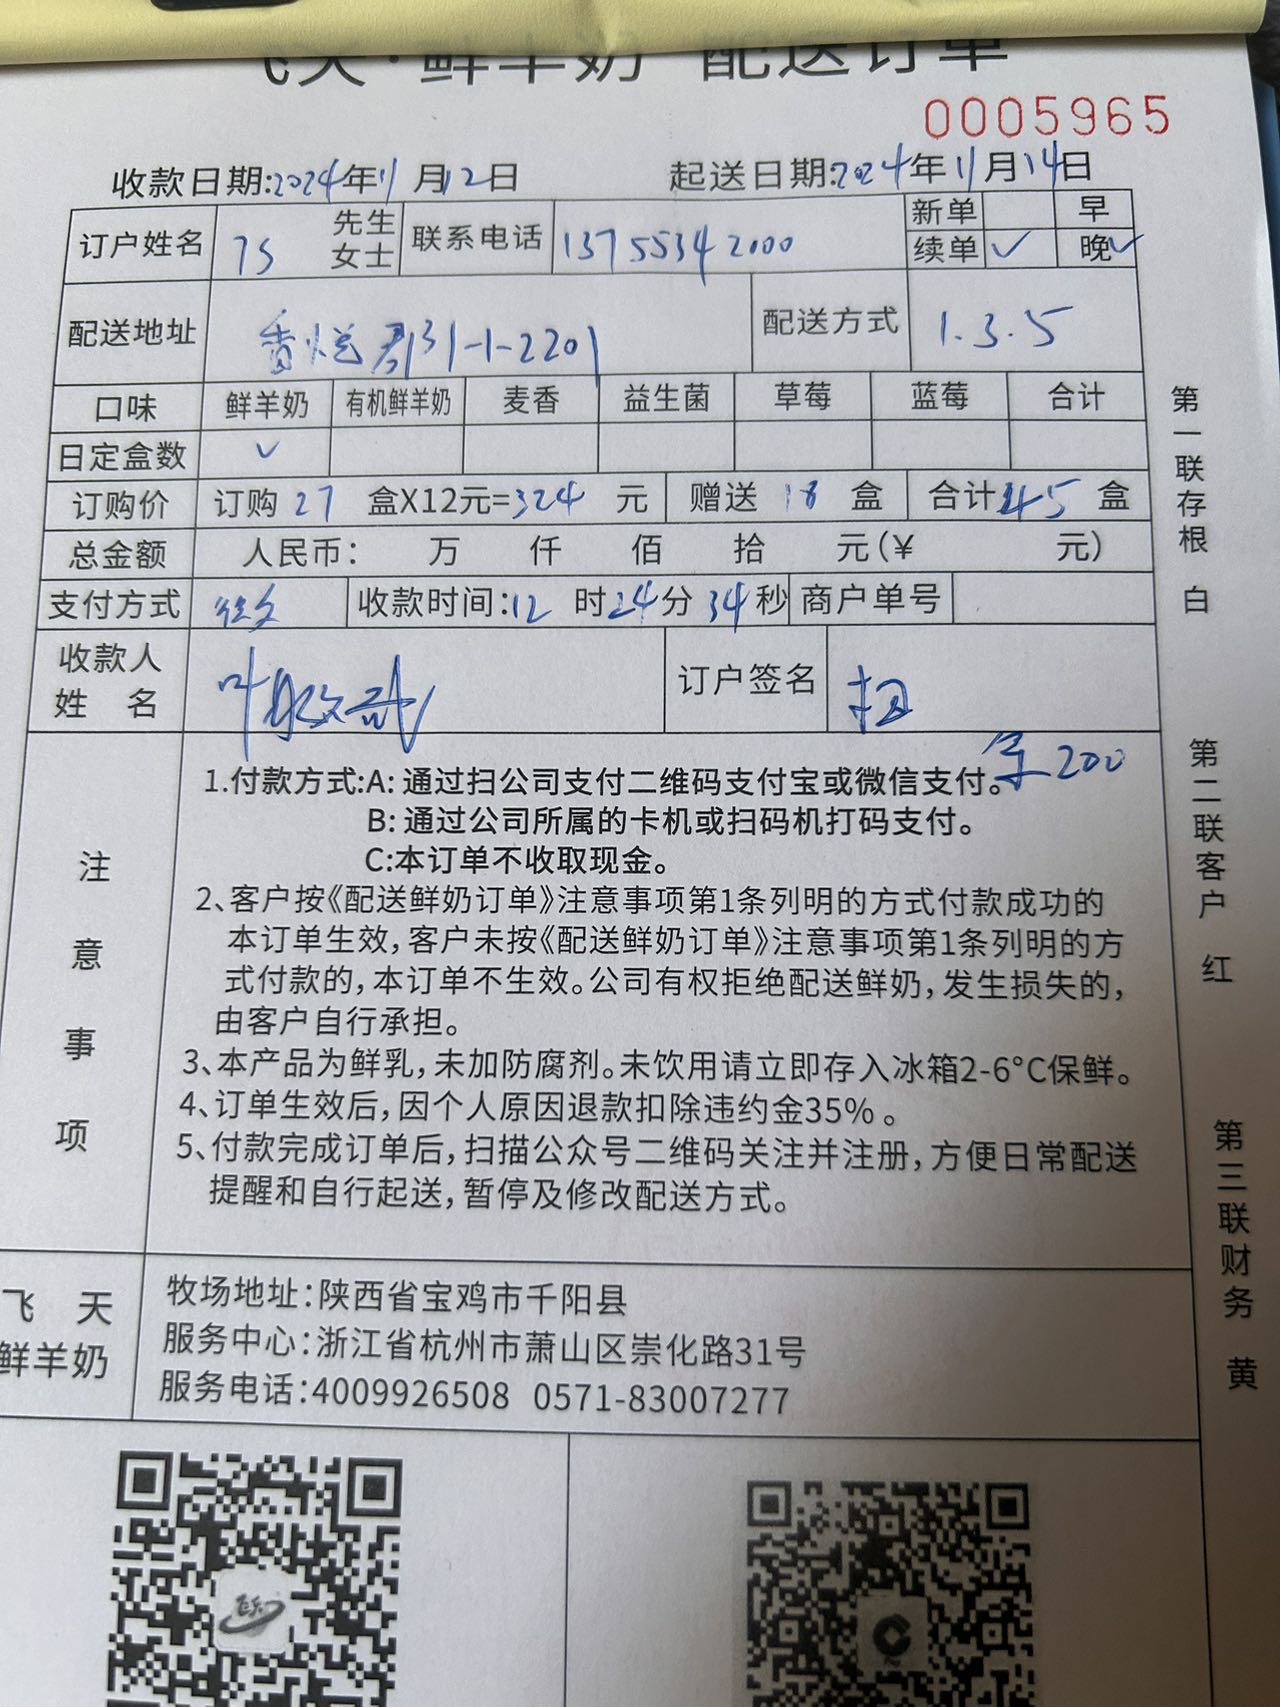 飞天·鲜羊奶 配送订单
0005965
收款日期:2024年11月12日 起送日期:2024年11月14日
订户姓名 先生 女士 联系电话 13755342000 新单 早
续单 ✓ 晚 ✓
配送地址 31-1-2201 配送方式 1.3.5
口味 鲜羊奶 有机鲜羊奶 麦香 益生菌 草莓 蓝莓 合计
日定盒数 ✓
订购价 订购 27 盒X12元=324 元 赠送 18 盒 合计 45 盒
总金额 人民币: 万 仟 佰 拾 元(¥ 元)
支付方式 收款时间:12 时24分 34秒 商户单号
收款人
姓 名 订户签名 扫
200
注意事项
1.付款方式:A: 通过扫公司支付二维码支付宝或微信支付。
B: 通过公司所属的卡机或扫码机打码支付。
C:本订单不收取现金。
2、客户按《配送鲜奶订单》注意事项第1条列明的方式付款成功的
本订单生效，客户未按《配送鲜奶订单》注意事项第1条列明的方
式付款的，本订单不生效。公司有权拒绝配送鲜奶，发生损失的，
由客户自行承担。
3、本产品为鲜乳，未加防腐剂。未饮用请立即存入冰箱2-6°C保鲜。
4、订单生效后，因个人原因退款扣除违约金35%。
5、付款完成订单后，扫描公众号二维码关注并注册，方便日常配送
提醒和自行起送，暂停及修改配送方式。
飞 天
鲜羊奶
牧场地址:陕西省宝鸡市千阳县
服务中心:浙江省杭州市萧山区崇化路31号
服务电话:4009926508 0571-83007277
第一联存根 白
第二联客户 红
第三联财务 黄